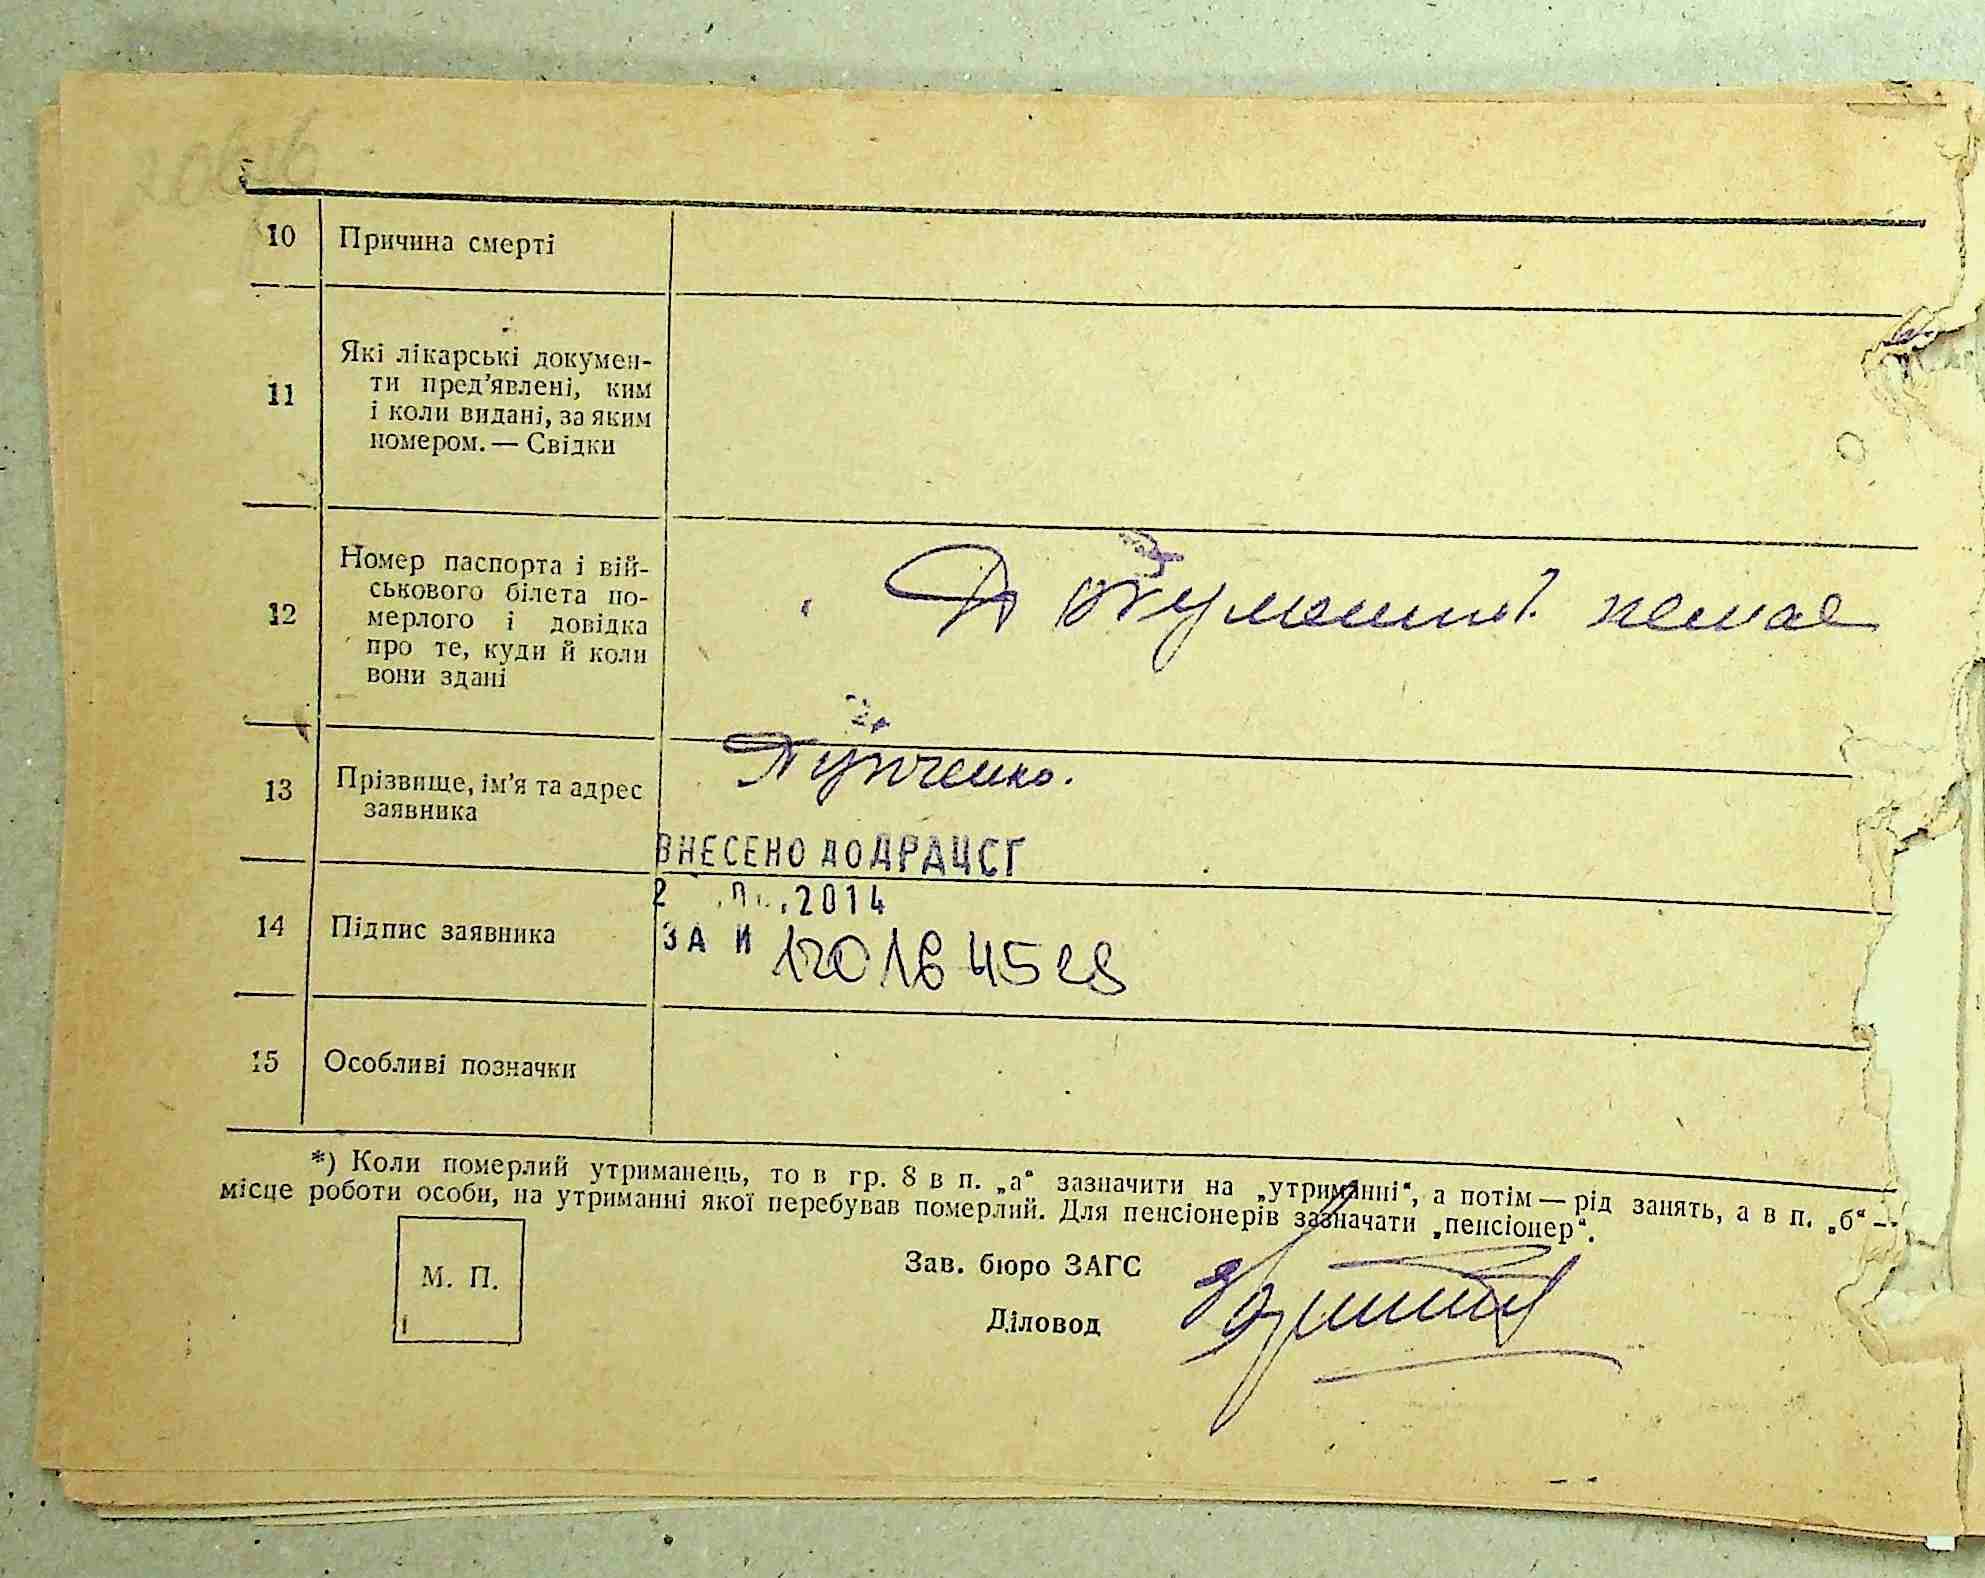 10 Причина смерті
11 Які лікарські докумен-
ти пред’явлені, ким
і коли видані, за яким
номером. — Свідки
12 Номер паспорта і вій-
ськового білета по-
мерлого і довідка
про те, куди й коли
вони здані
Документів немає
13 Прізвище, ім’я та адрес
заявника
ВНЕСЕНО ДО ДРАЦСГ
2014
14 Підпис заявника
ЗА И 12018 4528
15 Особливі позначки
*) Коли померлий утриманець, то в гр. 8 в п. „а“ зазначити на „утриманні“, а потім — рід занять, а в п. „б“ —
місце роботи особи, на утриманні якої перебував померлий. Для пенсіонерів зазначати „пенсіонер“.
М. П.
Зав. бюро ЗАГС
Діловод